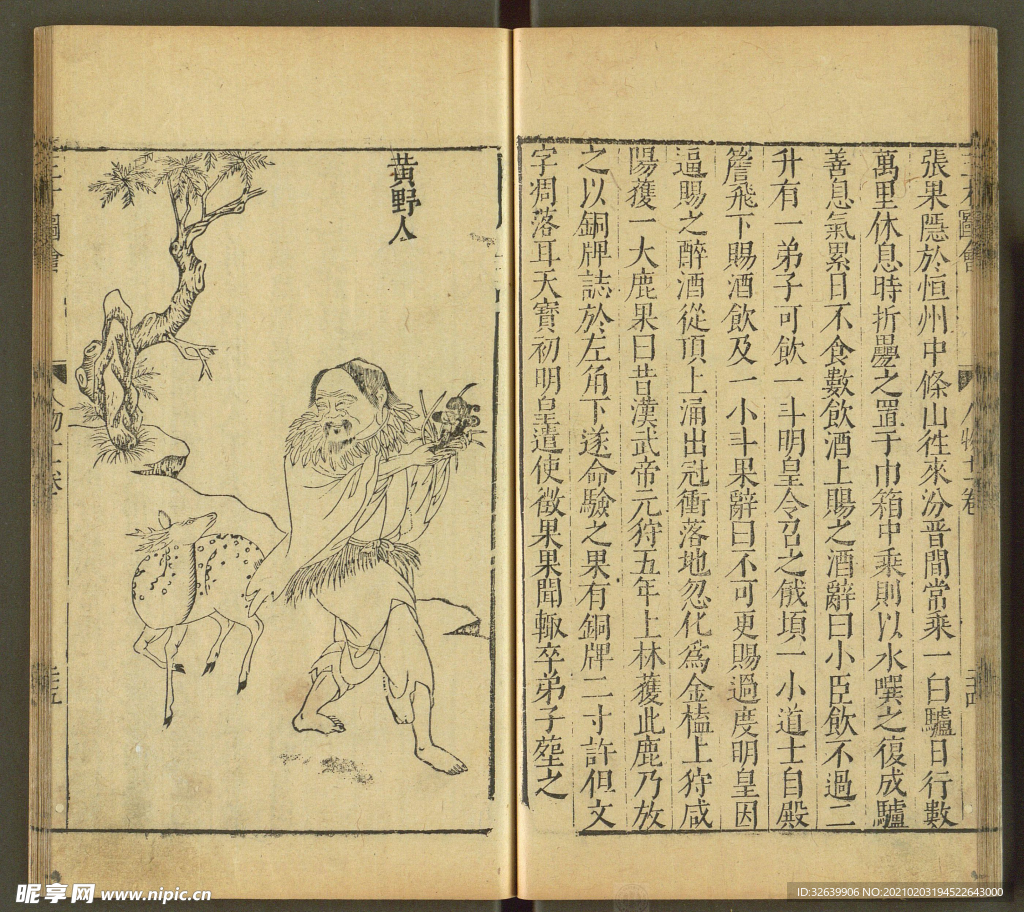 三才圖會
人物十一卷
張果隱於恒州中條山徃來汾晉間常乘一白驢日行數
萬里休息時折疊之置于巾箱中乘則以水噀之復成驢
善息氣累日不食數飲酒上賜之酒辭曰小臣飲不過二
升有一弟子可飲一斗明皇令召之俄頃一小道士自殿
簷飛下賜酒飲及一小斗果辭曰不可更賜過度明皇因
逼賜之醉酒從頂上涌出冠衝落地忽化爲金榼上狩咸
陽獲一大鹿果曰昔漢武帝元狩五年上林獲此鹿乃放
之以銅牌誌於左角下遂命驗之果有銅牌二寸許但文
字凋落耳天寶初明皇遣使徵果果聞輙卒弟子塟之
黄野人
昵享网 www.nipic.cn
ID:32639906 NO:20210203194522643000